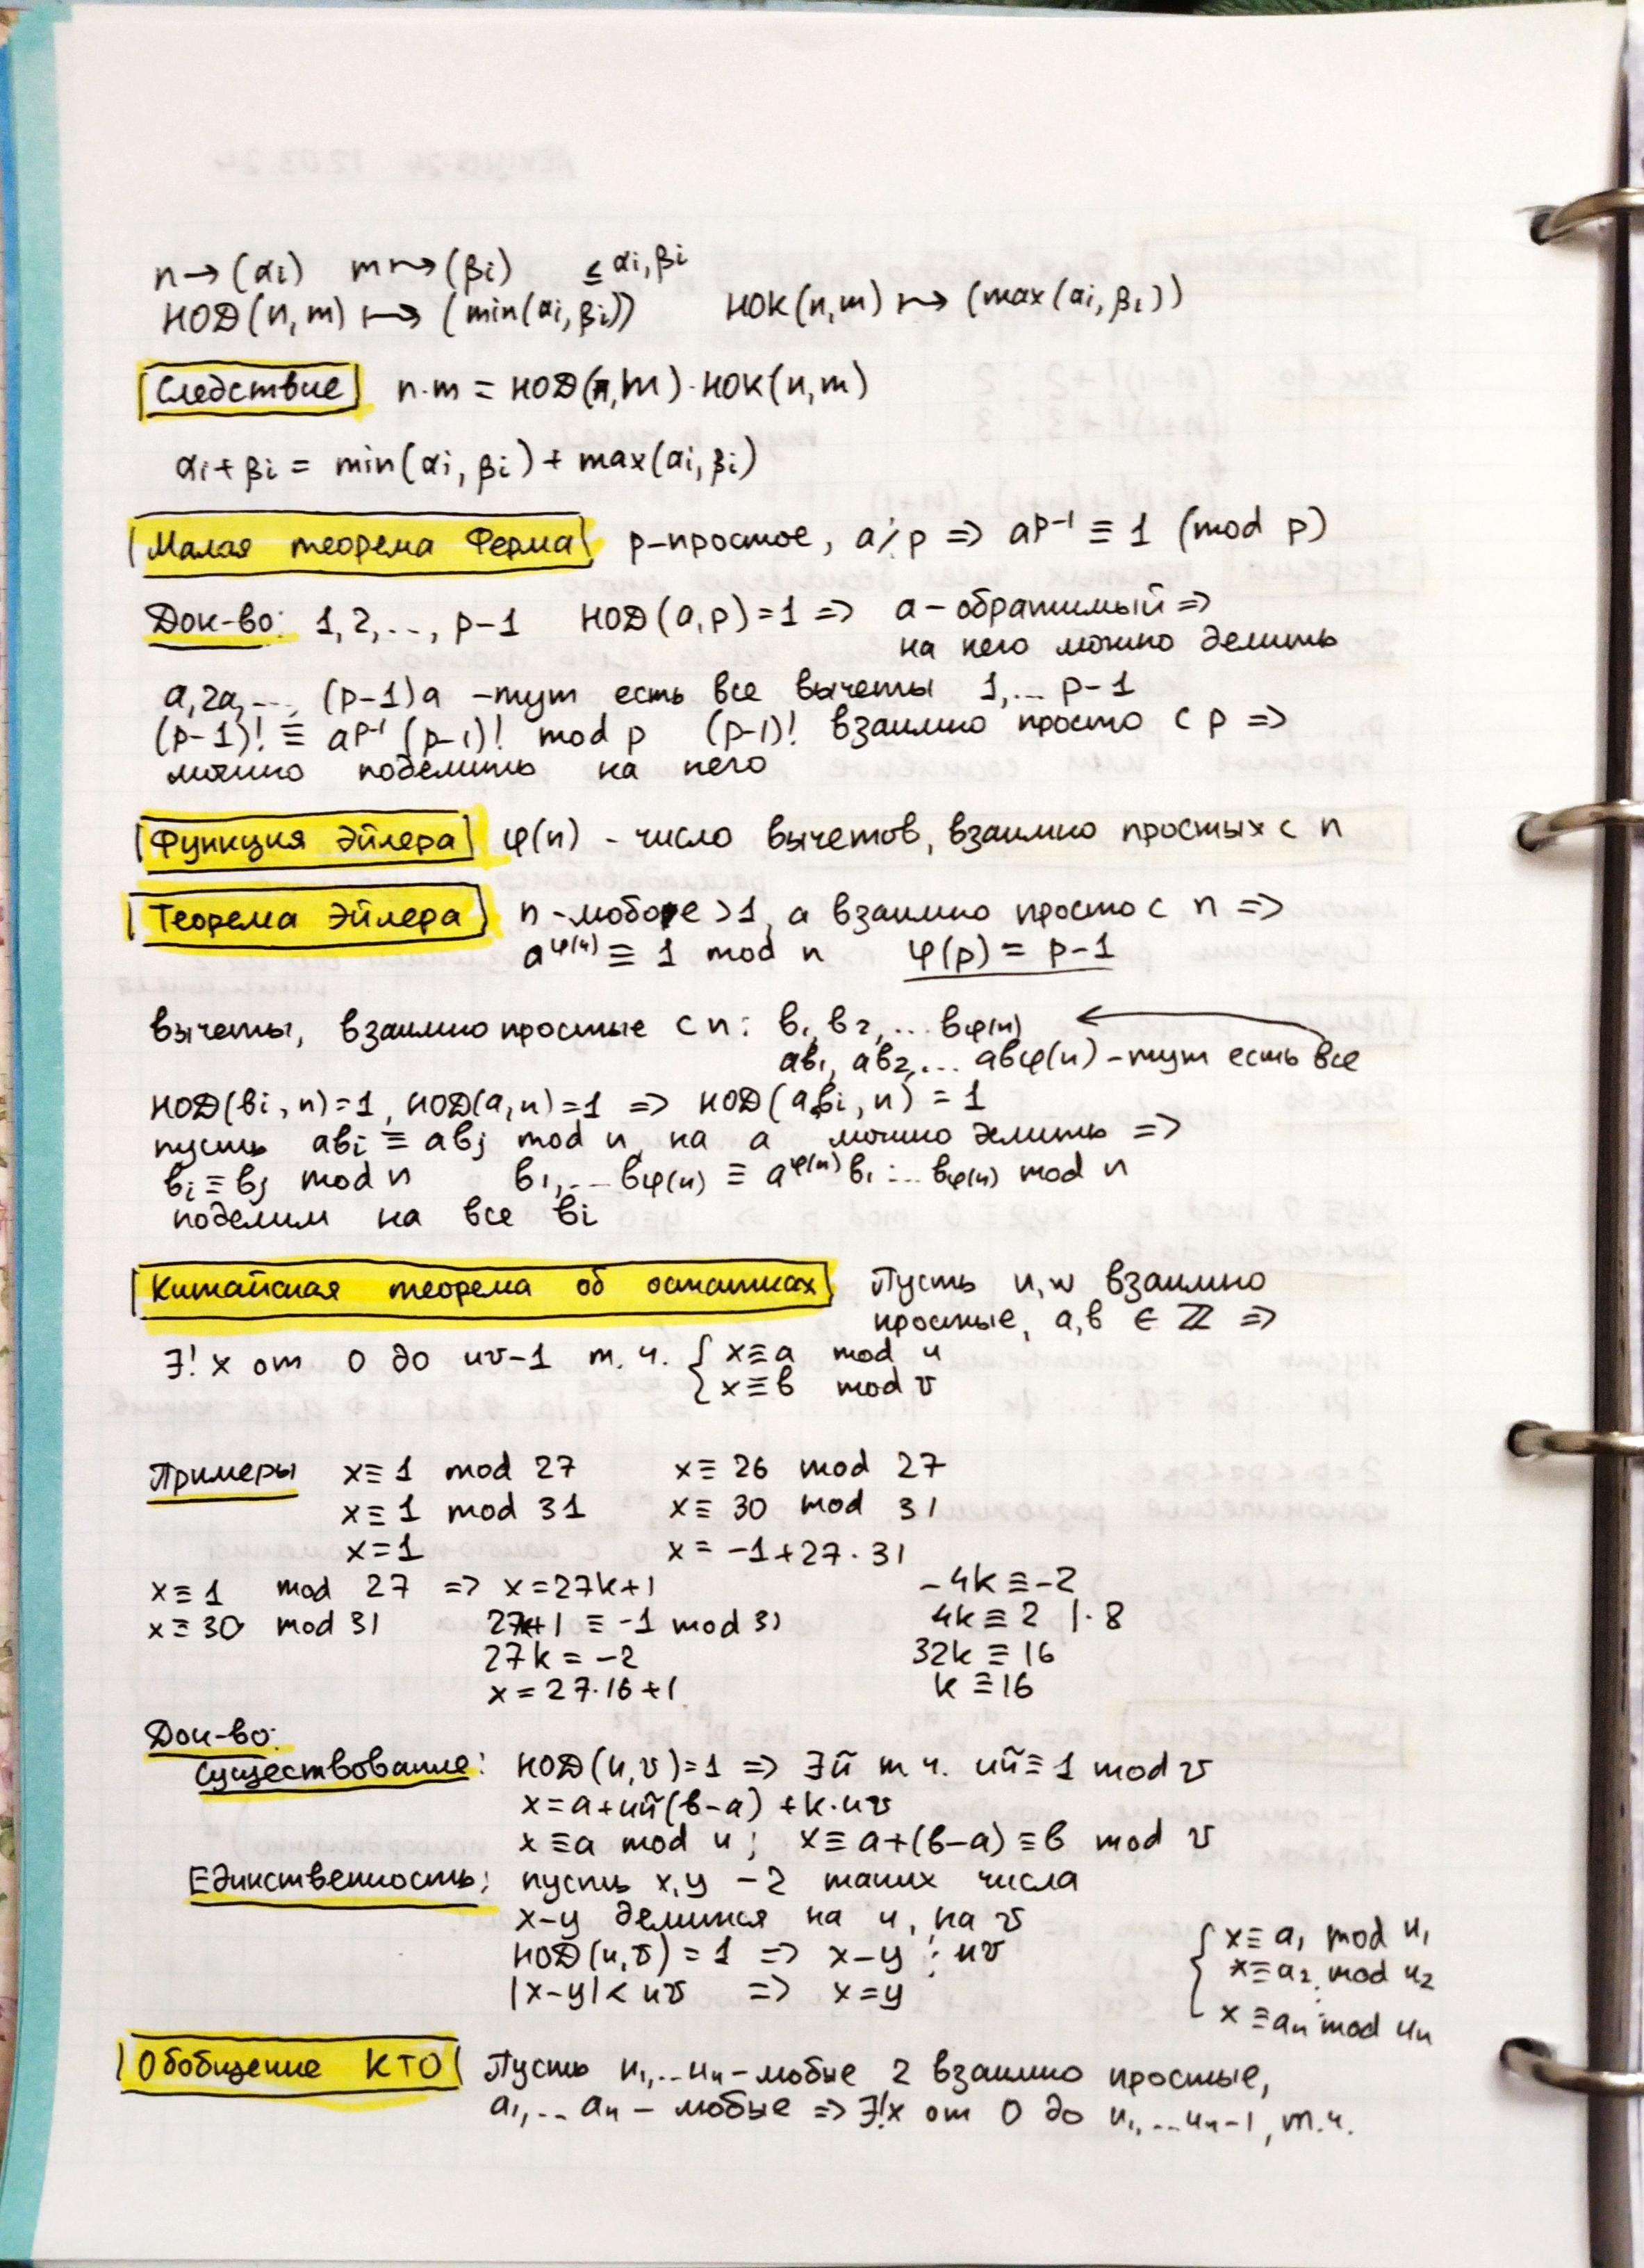 n → (αi) m ↦ (βi) ≤ αi, βi
НОД(n, m) ↦ (min(αi, βi)) НОК(n, m) ↦ (max(αi, βi))
Следствие n·m = НОД(n, m)·НОК(n, m)
αi + βi = min(αi, βi) + max(αi, βi)
Малая теорема Ферма p-простое, a⋮̸p => a^(p-1) ≡ 1 (mod p)
Док-во: 1, 2, ..., p-1 НОД(a, p) = 1 => a - обратимый =>
на него можно делить
a, 2a, ... (p-1)a - тут есть все вычеты 1, ... p-1
(p-1)! ≡ a^(p-1) (p-1)! mod p (p-1)! взаимно просто с p =>
можно поделить на него
Функция Эйлера φ(n) - число вычетов, взаимно простых с n
Теорема Эйлера n - любое > 1, a взаимно просто с n =>
a^φ(n) ≡ 1 mod n φ(p) = p-1
вычеты, взаимно простые с n: b₁, b₂, ... bφ(n)
ab₁, ab₂, ... abφ(n) - тут есть все
НОД(bi, n) = 1, НОД(a, n) = 1 => НОД(abi, n) = 1
пусть abi ≡ abj mod n, на a можно делить =>
bi ≡ bj mod n b₁, ... bφ(n) ≡ a^φ(n) b₁ ... bφ(n) mod n
поделим на все bi
Китайская теорема об остатках Пусть u, v взаимно
простые, a, b ∈ ℤ =>
∃! x от 0 до uv-1 т.ч. { x ≡ a mod u
x ≡ b mod v
Примеры x ≡ 1 mod 27 x ≡ 26 mod 27
x ≡ 1 mod 31 x ≡ 30 mod 31
x = 1 x = -1 + 27·31
x ≡ 1 mod 27 => x = 27k+1 -4k ≡ -2
x ≡ 30 mod 31 27k+1 ≡ -1 mod 31 4k ≡ 2 |·8
27k = -2 32k ≡ 16
x = 27·16+1 k ≡ 16
Док-во:
Существование: НОД(u, v) = 1 => ∃ũ т.ч. uũ ≡ 1 mod v
x = a + uũ(b-a) + k·uv
x ≡ a mod u; x ≡ a+(b-a) ≡ b mod v
Единственность: пусть x, y - 2 таких числа
x-y делится на u, на v
НОД(u, v) = 1 => x-y ⋮ uv
|x-y| < uv => x = y
{ x ≡ a₁ mod u₁
x ≡ a₂ mod u₂
⋮
x ≡ an mod un
Обобщение КТО Пусть u₁, ... un - любые 2 взаимно простые,
a₁, ... an - любые => ∃!x от 0 до u₁, ... un-1, т.ч.